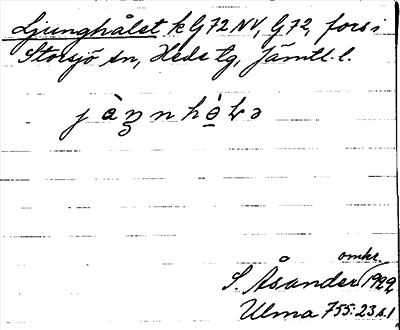 Ljunghålet k G72 NV, G72, fors i
Storsjö sn, Hede tg, Jämtl. l.
j
omkr.
S. Åsander 1922
Ulma 755:23 s. 1